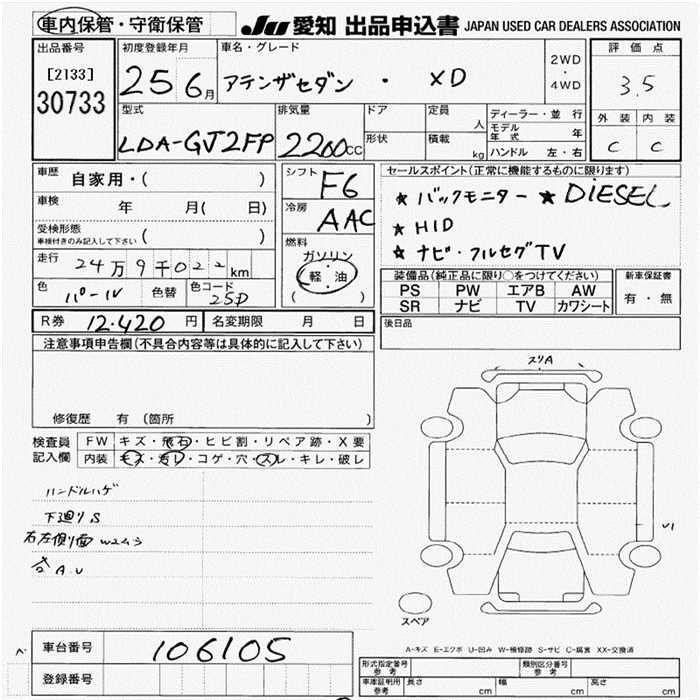 車内保管・守衛保管
JU 愛知 出品申込書 JAPAN USED CAR DEALERS ASSOCIATION
出品番号 初度登録年月 車名・グレード 2WD・4WD 評価点
[2133] 25 6月 アテンザセダン ・ XD 3.5
30733
型式 排気量 ドア 定員 人 ディーラー・並行 外装 内装
LDA-GJ2FP 2200cc 形状 積載 kg モデル年式 年 C C
ハンドル 左・右
車歴 自家用・( ) シフト F6 セールスポイント(正常に機能するものに限ります)
車検 年 月( 日) 冷房 AAC ★バックモニター ★DIESEL
受検形態 ( ) ★HID
車検付きのみ記入して下さい 燃料 ★ナビ・フルセグTV
走行 24万9千022km ガソリン
軽・油
( )
色 パール 色替 色コード 25D
装備品(純正品に限り○をつけてください) 新車保証書
PS PW エアB AW 有・無
SR ナビ TV カワシート
R券 12.420円 名変期限 月 日 後日品
注意事項申告欄(不具合内容等は具体的に記入して下さい)
修復歴 有 (箇所 )
検査員記入欄 FW キズ・飛石・ヒビ割・リペア跡・X要
内装 キズ・汚レ・コゲ・穴・スレ・キレ・破レ
スリA
ハンドルハゲ
下廻りS
右左側面W2ムラ
各A.U
U1
スペア
A-キズ E-エクボ U-凹み W-補修跡 S-サビ C-腐蝕 XX-交換済
車台番号 106105
登録番号
形式指定番号 参考 類別区分番号 参考
車庫証明用 参考 長さ cm 幅 cm 高さ cm